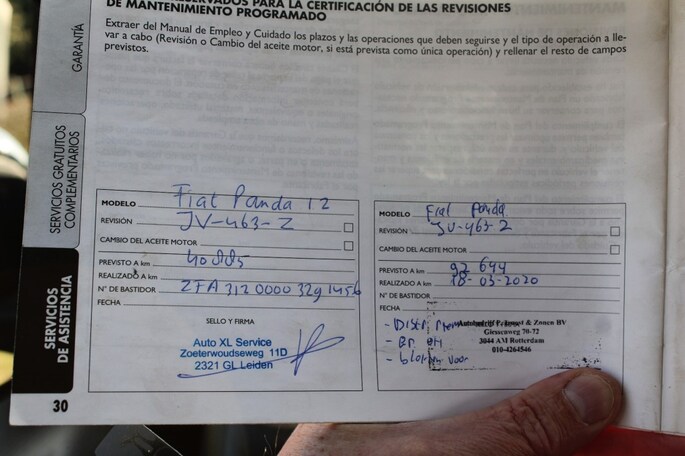 DE MANTENIMIENTO PROGRAMADO
PARA LA CERTIFICACIÓN DE LAS REVISIONES
Extraer del Manual de Empleo y Cuidado los plazos y las operaciones que deben seguirse y el tipo de operación a lle-
var a cabo (Revisión o Cambio del aceite motor, si está prevista como única operación) y rellenar el resto de campos
previstos.
GARANTÍA
SERVICIOS GRATUITOS
COMPLEMENTARIOS
SERVICIOS
DE ASISTENCIA
MODELO Fiat Panda 12
REVISIÓN JV-463-Z
CAMBIO DEL ACEITE MOTOR
PREVISTO A km 40885
REALIZADO A km
N° DE BASTIDOR ZFA3120000329
FECHA
SELLO Y FIRMA
Auto XL Service
Zoeterwoudseweg 11D
2321 GL Leiden
MODELO Fiat Panda
REVISIÓN JV-463-Z
CAMBIO DEL ACEITE MOTOR
PREVISTO A km 92 644
REALIZADO A km 18-03-2020
N° DE BASTIDOR
FECHA
& Zonen BV
Giessenweg 70-72
3044 AM Rotterdam
010-4264546
30